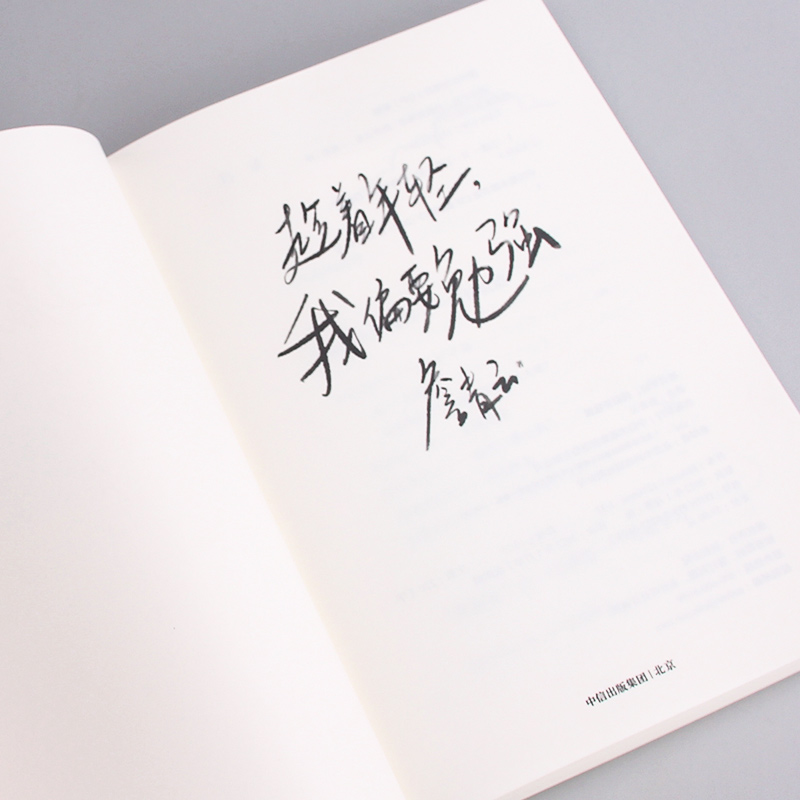 趁着年轻，
我偏要勉强
詹青云 著
中信出版集团 | 北京